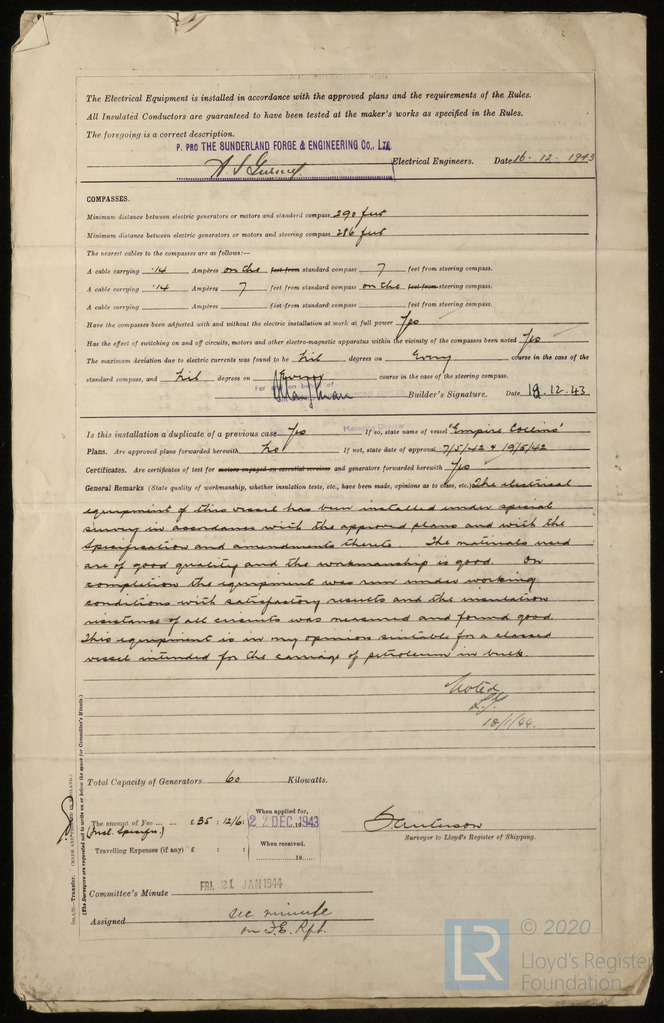 The Electrical Equipment is installed in accordance with the approved plans and the requirements of the Rules.
All Insulated Conductors are guaranteed to have been tested at the maker's works as specified in the Rules.
The foregoing is a correct description.
P. PRO THE SUNDERLAND FORGE & ENGINEERING Co., LTD.
Electrical Engineers. Date 16-12-1943
COMPASSES.
Minimum distance between electric generators or motors and standard compass 290 feet
Minimum distance between electric generators or motors and steering compass 286 feet
The nearest cables to the compasses are as follows:—
A cable carrying .14 Ampères on the feet from standard compass 7 feet from steering compass.
A cable carrying .14 Ampères 7 feet from standard compass on the feet from steering compass.
A cable carrying Ampères feet from standard compass feet from steering compass.
Have the compasses been adjusted with and without the electric installation at work at full power Yes
Has the effect of switching on and off circuits, motors and other electro-magnetic apparatus within the vicinity of the compasses been noted Yes
The maximum deviation due to electric currents was found to be Nil degrees on Every course in the case of the
standard compass, and Nil degrees on Every course in the case of the steering compass.
For and on behalf of
Builder's Signature. Date 18.12.43
Managing Director
Is this installation a duplicate of a previous case Yes If so, state name of vessel "Empire Collins"
Plans. Are approved plans forwarded herewith No If not, state date of approval 7/5/42 & 19/5/42
Certificates. Are certificates of test for motors engaged on essential services and generators forwarded herewith Yes
General Remarks (State quality of workmanship, whether insulation tests, etc., have been made, opinions as to class, etc.) The electrical
equipment of this vessel has been installed under special
survey in accordance with the approved plans and with the
specification and amendments thereto. The materials used
are of good quality and the workmanship is good. On
completion the equipment was run under working
conditions with satisfactory results and the insulation
resistance of all circuits was measured and found good.
This equipment is in my opinion suitable for a classed
vessel intended for the carriage of petroleum in bulk.
Noted
18/1/44.
Total Capacity of Generators 60 Kilowatts.
The amount of Fee ... ... £ 35 : 12/6 : When applied for, 22 DEC 1943
(Incl. Specifn)
Travelling Expenses (if any) £ : : When received, 19
Surveyor to Lloyd's Register of Shipping.
Committee's Minute FRI. 21 JAN 1944
Assigned see minute
on F.E. Rpt.
(The Surveyors are requested not to write on or below the space for Committee's Minute.)
© 2020
LR Lloyd's Register
Foundation